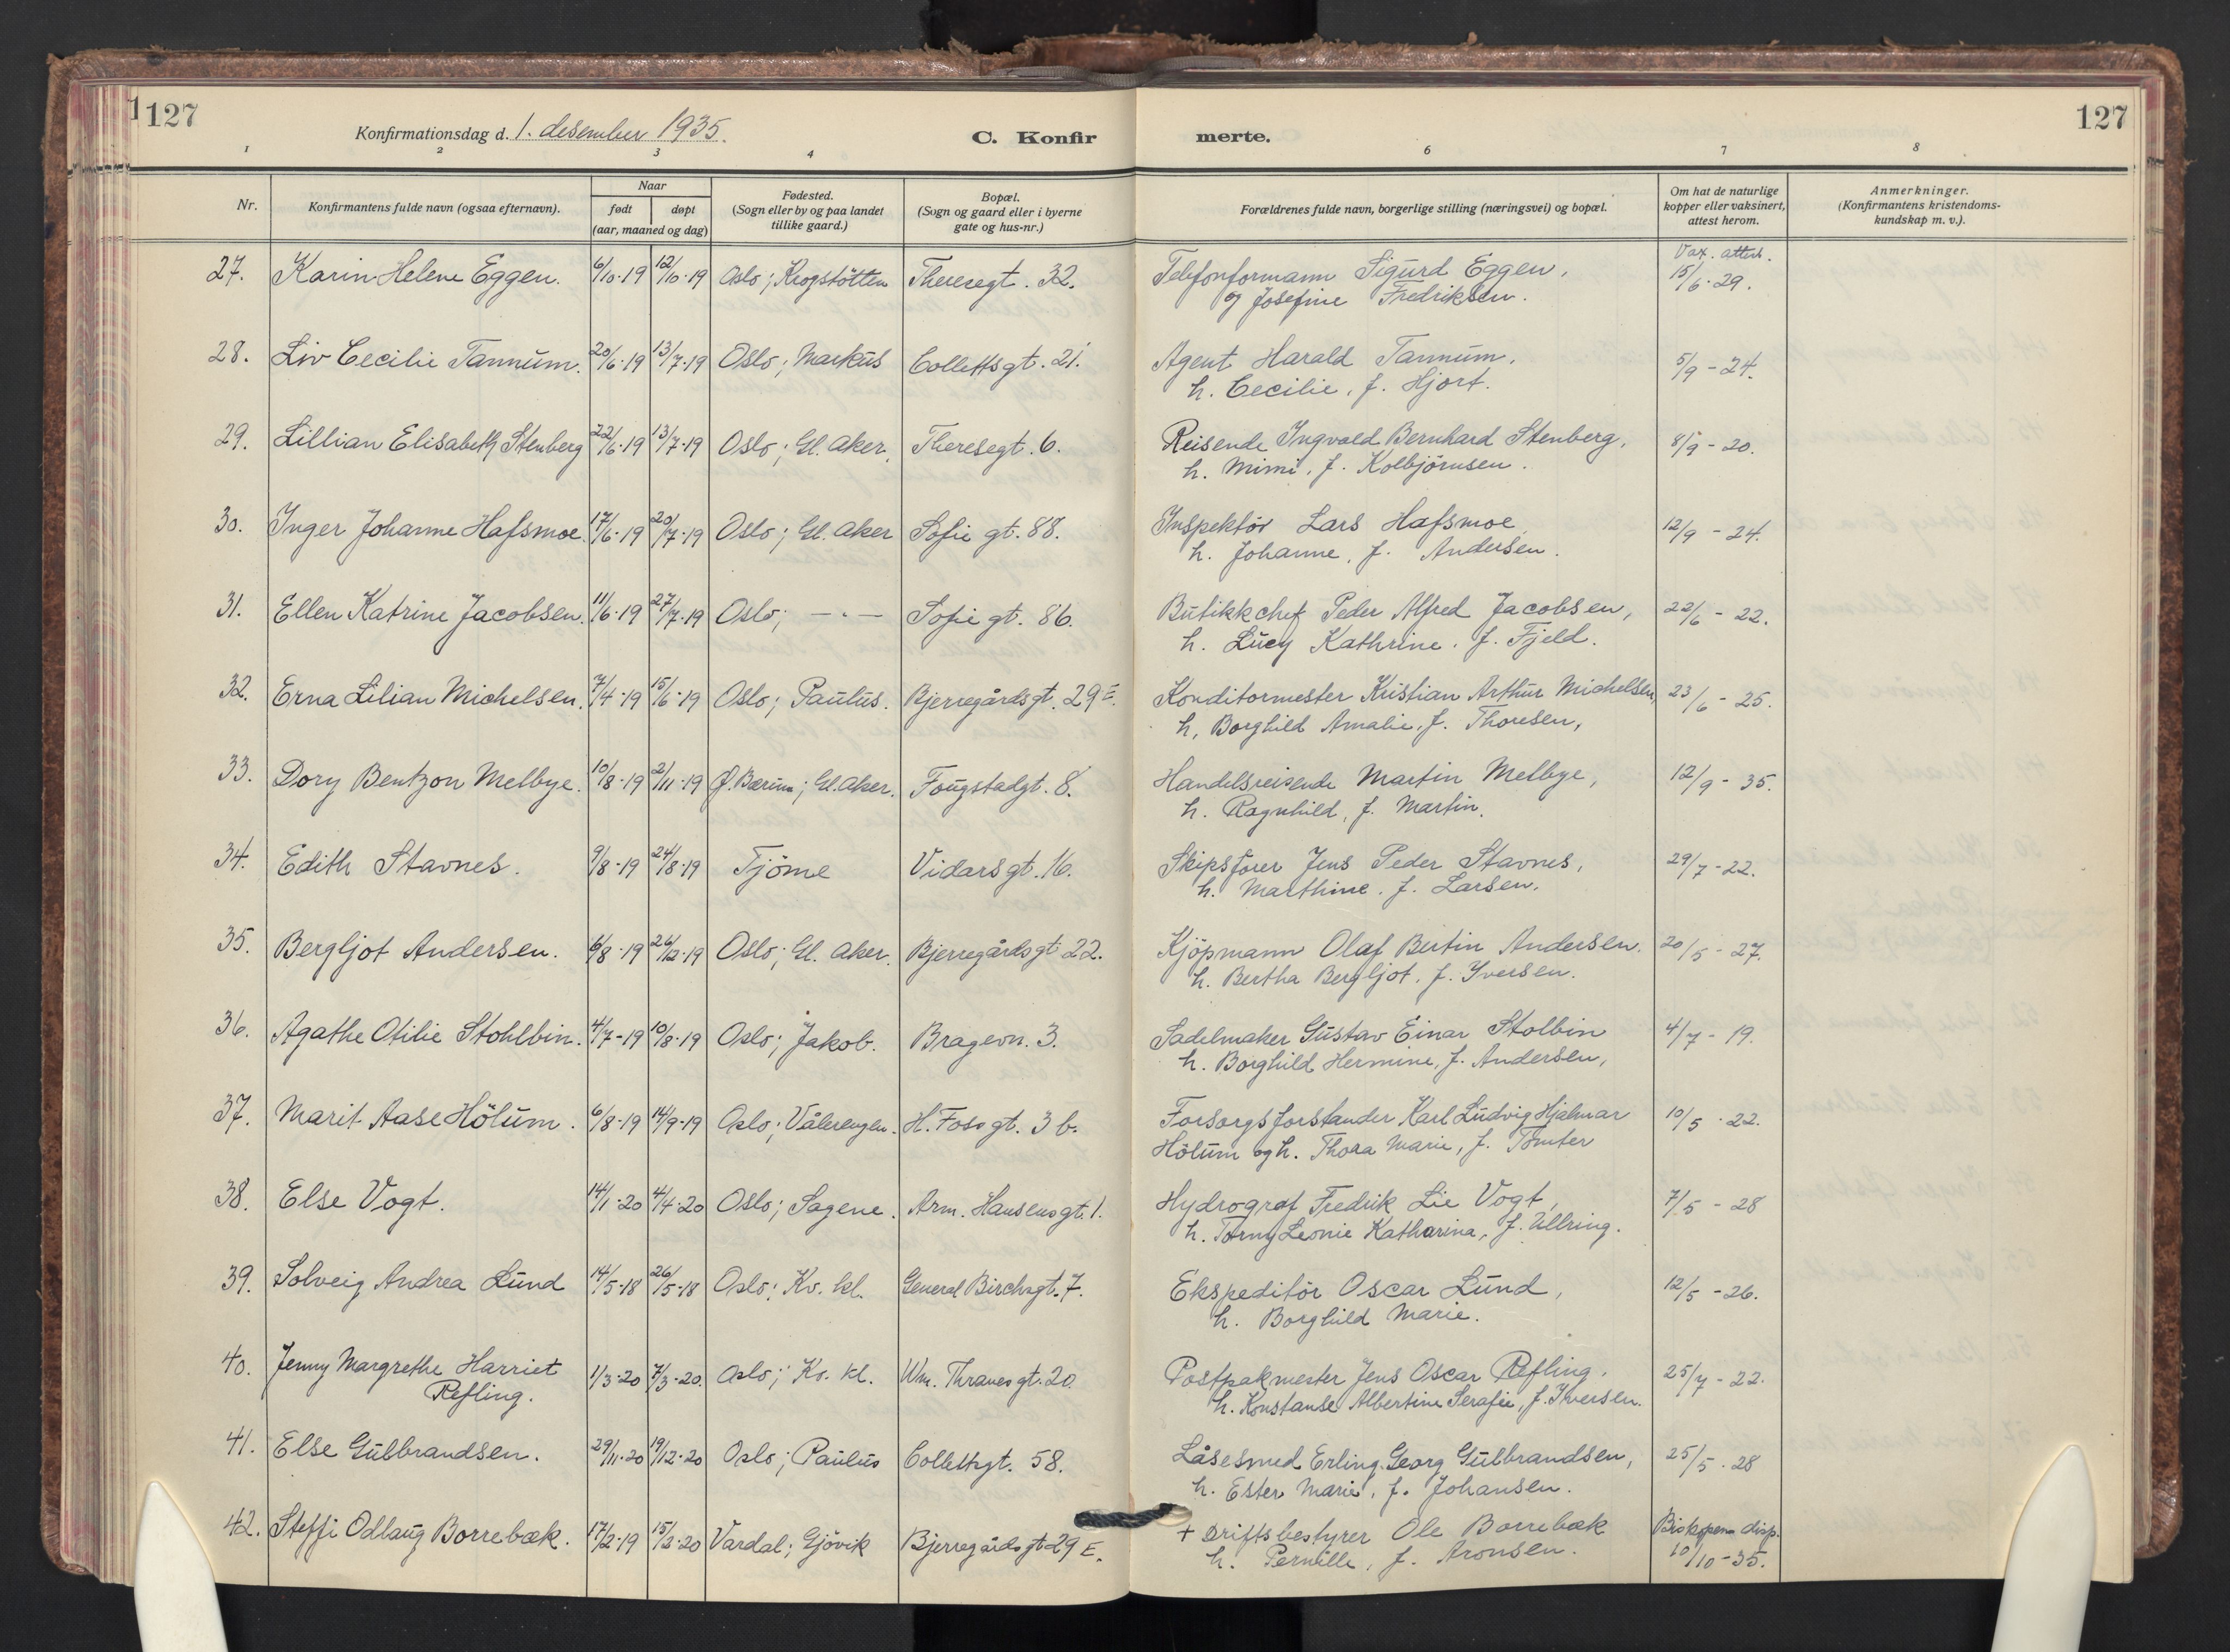 127
Konfirmationsdag d. 1. desember 1935.
C. Konfir
merte.
127
1 2 3 4 6 7 8
Nr.
Konfirmantens fulde navn (ogsaa efternavn).
Naar
født døpt
(aar, maaned og dag)
Fødested.
(Sogn eller by og paa landet
tillike gaard.)
Bopæl.
(Sogn og gaard eller i byerne
gate og hus-nr.)
Forældrenes fulde navn, borgerlige stilling (næringsvei) og bopæl.
Om hat de naturlige
kopper eller vaksinert,
attest herom.
Anmerkninger.
(Konfirmantens kristendoms-
kundskap m. v.).
Vax. attest.
27. Karin Helene Eggen. 6/10-19 12/10-19 Oslo; Krogstötten Theresegt. 32. Telefonformann Sigurd Eggen, 15/6-29.
og Josefine Fredriksen.
28. Liv Cecilie Tannum. 20/6-19 13/7-19 Oslo; Markus Collettsgt. 21. Agent Harald Tannum, 5/9-24.
h. Cecilie, f. Hjort.
29. Lillian Elisabeth Stenberg 22/6-19 13/7-19 Oslo; Gl. Aker. Theresegt. 6. Reisende Ingvald Bernhard Stenberg, 8/9-20.
h. Mimi, f. Kolbjörnsen.
30. Inger Johanne Hafsmoe. 17/6-19 20/7-19 Oslo; Gl. Aker Sofie gt. 88. Inspektör Lars Hafsmoe 12/9-24.
h. Johanne, f. Andersen.
31. Ellen Katrine Jacobsen. 11/6-19 27/7-19 Oslo; — " — Sofie gt. 86. Butikkchef Peder Alfred Jacobsen, 22/6-22.
h. Lucy Kathrine, f. Fjeld.
32. Erna Lilian Michelsen. 7/4-19 15/6-19 Oslo; Paulus. Bjerregårdsgt. 29 E. Konditormester Kristian Arthur Michelsen, 23/6-25.
h. Borghild Amalie, f. Thoresen,
33. Dory Bentzon Melbye. 10/8-19 2/11-19 Ø. Bærum; Gl. Aker. Fougstadgt. 8. Handelsreisende Martin Melbye, 12/9-35.
h. Ragnhild, f. Martin.
34. Edith Stavnes. 9/8-19 24/8-19 Tjöme Vidarsgt. 16. Skipsfører Jens Peder Stavnes, 29/7-22.
h. Marthine, f. Larsen.
35. Bergljot Andersen. 6/8-19 26/12-19 Oslo; Gl. Aker. Bjerregårdsgt 22. Kjöpmann Olaf Bertin Andersen. 20/5-27.
h. Bertha Bergljot, f. Yversen.
36. Agathe Otilie Stohlbin. 4/7-19 10/8-19 Oslo; Jakob. Bragevn. 3. Sadelmaker Gustav Einar Stolbin 4/7-19.
h. Borghild Hermine, f. Andersen,
37. Marit Aase Hölum. 6/8-19 14/9-19 Oslo; Vålerengen. H. Foss gt. 3 b. Forsorgsforstander Karl Ludvig Hjalmar 10/5-22.
Hölum og h. Thora Marie, f. Tomter
38. Else Vogt. 14/1-20 4/4-20 Oslo; Sagene. Arm. Hansens gt. 1. Hydrograf Fredrik Lie Vogt, 7/5-28
h. Torny Leonie Katharina, f. Ullring.
39. Solveig Andrea Lund 14/5-18 26/5-18 Oslo; Kv. kl. General Birchsgt. 7. Ekspeditör Oscar Lund, 12/5-26.
h. Borghild Marie.
40. Jenny Margrethe Harriet 1/3-20 7/3-20. Oslo; Kv. kl. Wm. Thranes gt. 20. Postpakmester Jens Oscar Refling, 25/7-22.
Refling. h. Konstanse Albertine Serafie, f. Iversen.
41. Else Gulbrandsen. 29/11-20 19/12-20 Oslo; Paulus Collettsgt. 58. Låsesmed Erling Georg Gulbrandsen, 25/5-28
h. Ester Marie, f. Johansen.
42. Steffi Odlaug Borrebæk. 17/2-19 15/2-20 Vardal; Gjövik Bjerregårdsgt 29 E. + Driftsbestyrer Ole Borrebæk Biskopens disp.
h. Pernille, f. Aronsen. 10/10-35.